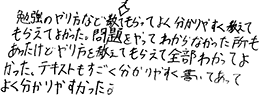 勉強のやり方など教えてもらってよく分かりやすく教えて
もらえてよかった。問題をやってわからなかった所も
あったけどやり方を教えてもらえて全部わかってよ
かった、テキストもすごく分かりやすく書いてあって
よく分かりやすかった。